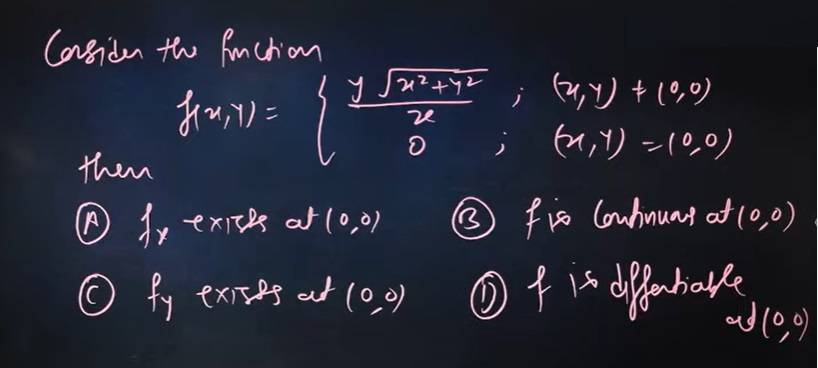 Consider the function
f(x,y) = { y √x²+y² / x ; (x,y) ≠ (0,0)
0 ; (x,y) = (0,0)
then
Ⓐ fx exists at (0,0) Ⓑ f is Continuous at (0,0)
Ⓒ fy exists at (0,0) Ⓓ f is diffentiable
at (0,0)